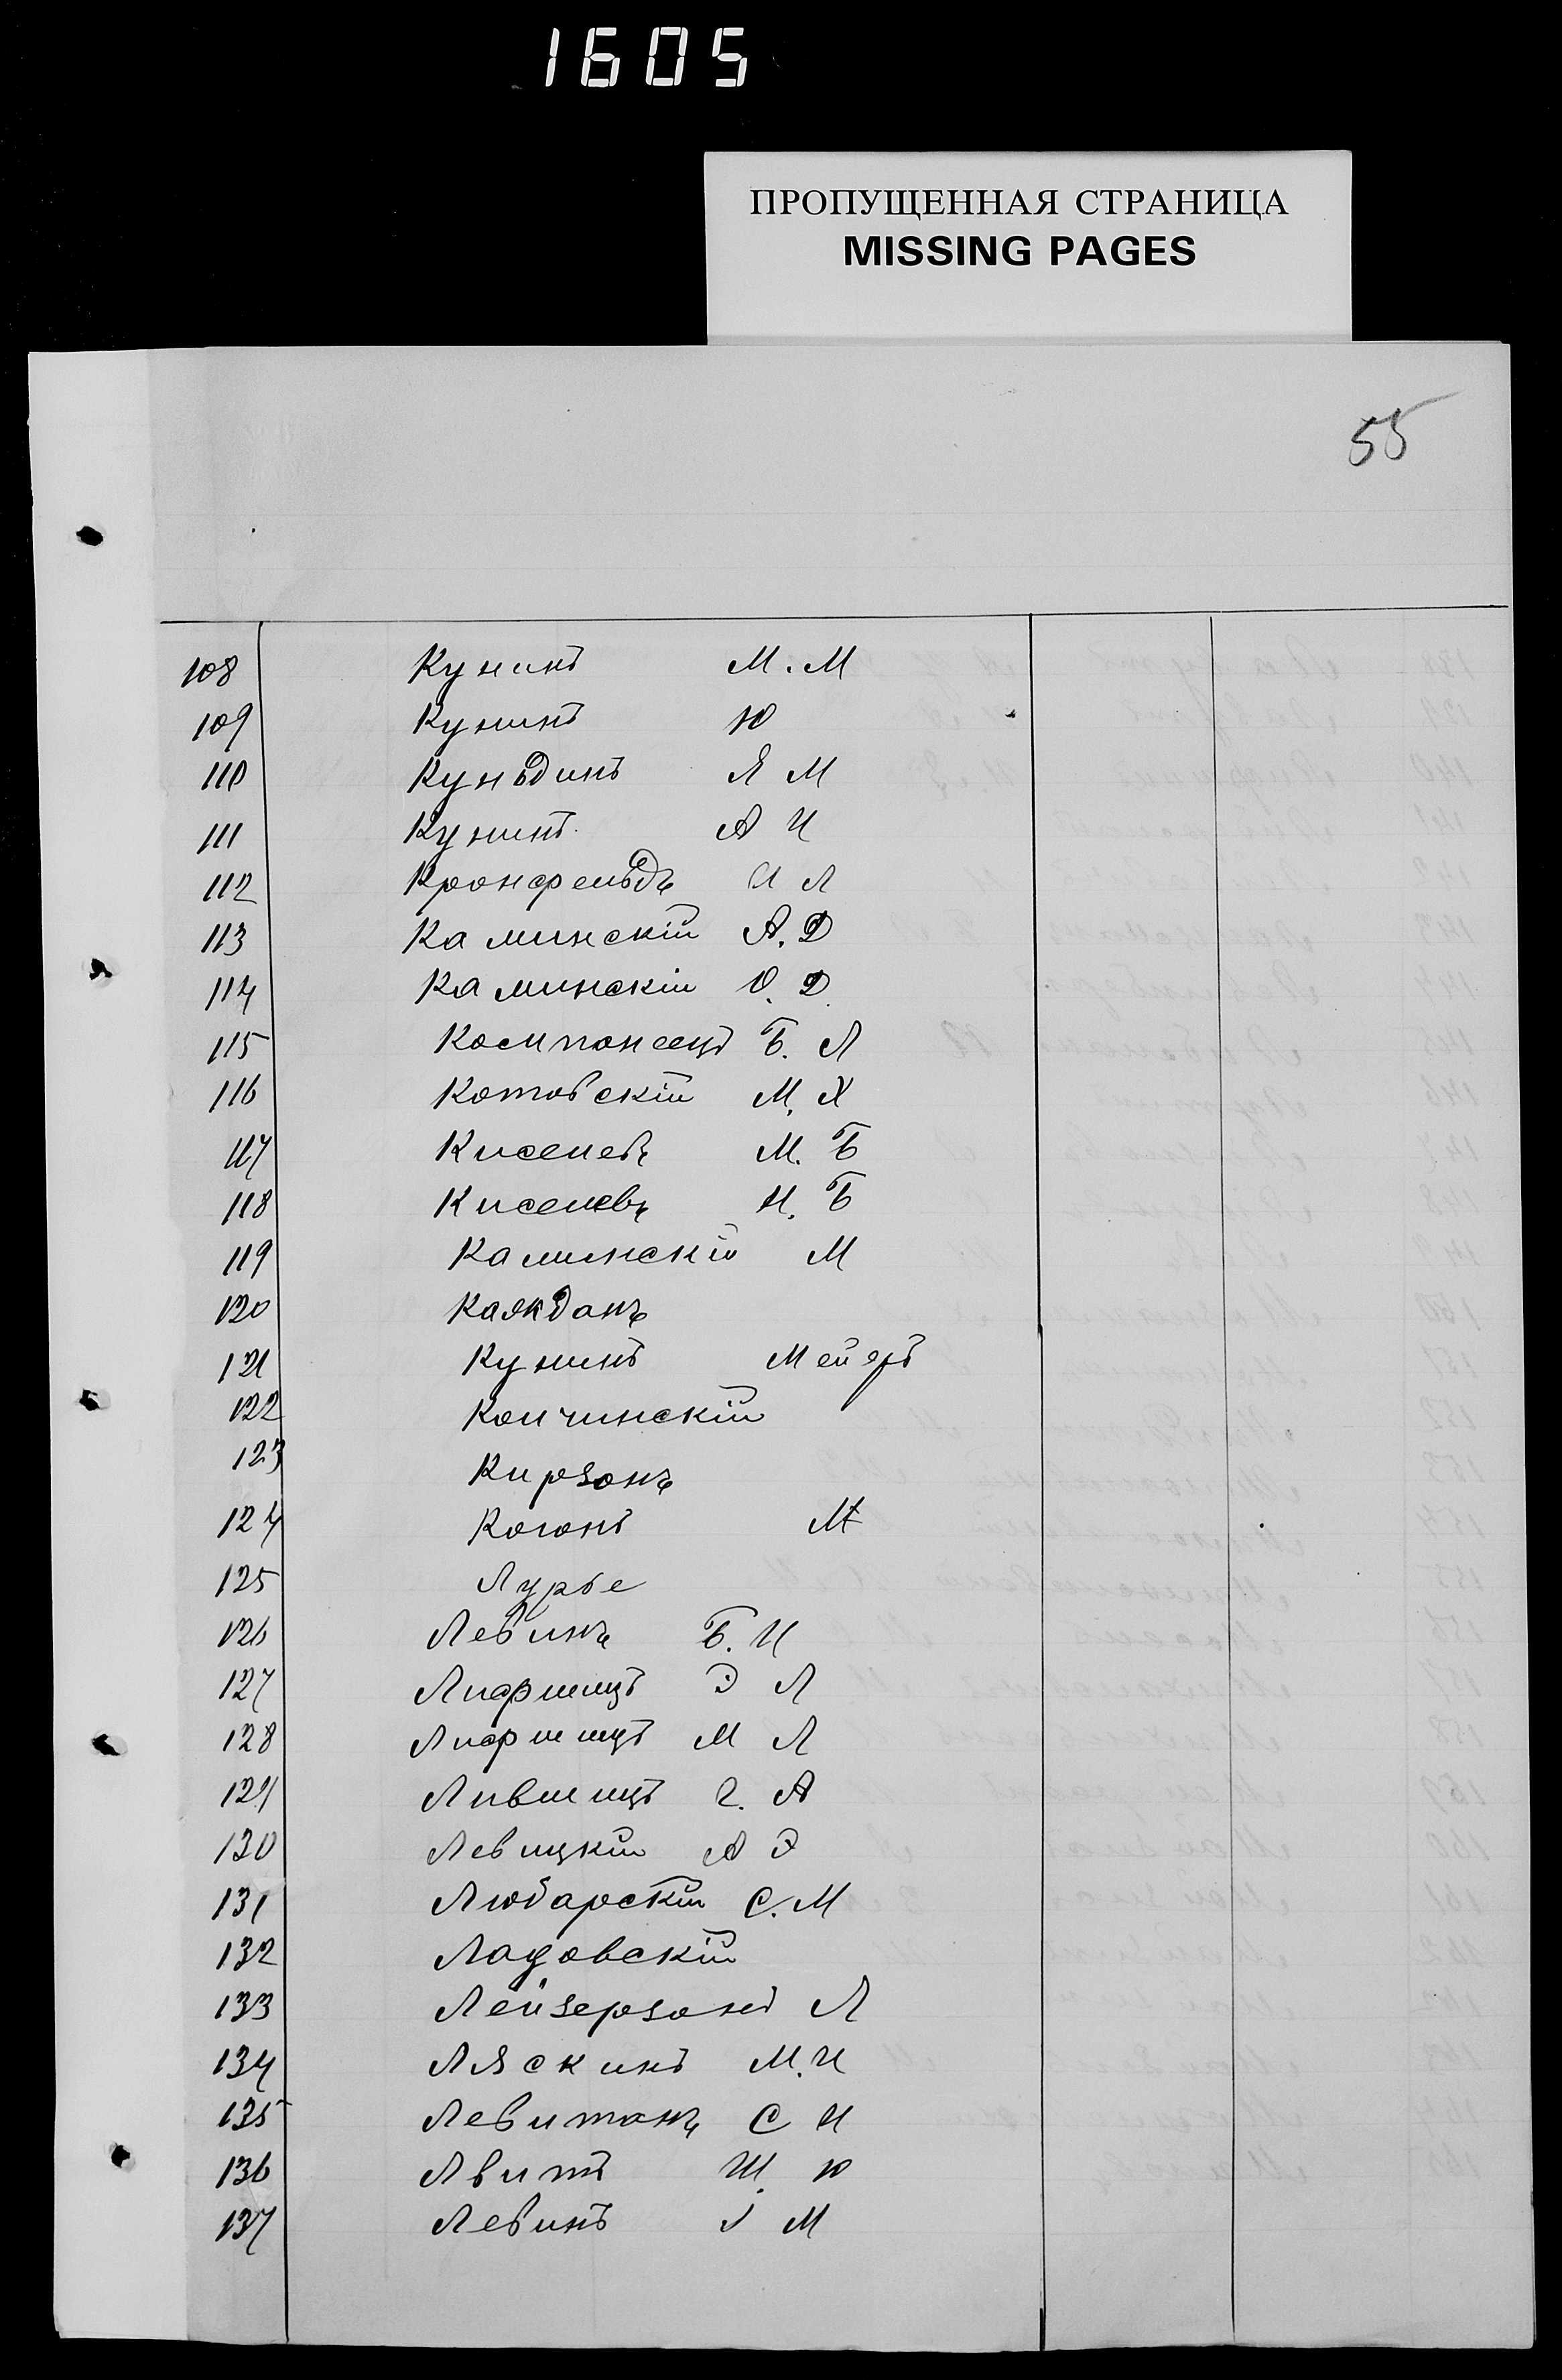 1605
ПРОПУЩЕННАЯ СТРАНИЦА
MISSING PAGES
55
108 Кунинъ М. М
109 Кунинъ Ю
110 Куньдинъ Я М
111 Кунинъ А И
112 Кронфельдъ И Л
113 Каминскій А. Д
114 Каминскій О. Д.
115 Компонеецъ Б. Л
116 Котовскій М. Х
117 Киселевъ М. Б
118 Киселевъ И. Б
119 Каминскій М
120 Каякданъ
121 Кунинъ Мейеръ
122 Копчинскій
123 Кирзонъ
124 Коганъ М
125 Лурье
126 Левинъ Б. И
127 Лифшицъ Э Л
128 Лифшицъ М Л
129 Лившицъ Г. А
130 Левицкій А Э
131 Любарскій С. М
132 Ладовскій
133 Лейзерзонъ Л
134 Ляскинъ М. И
135 Левитанъ С И
136 Лвитъ Ш. Ю
137 Левинъ М